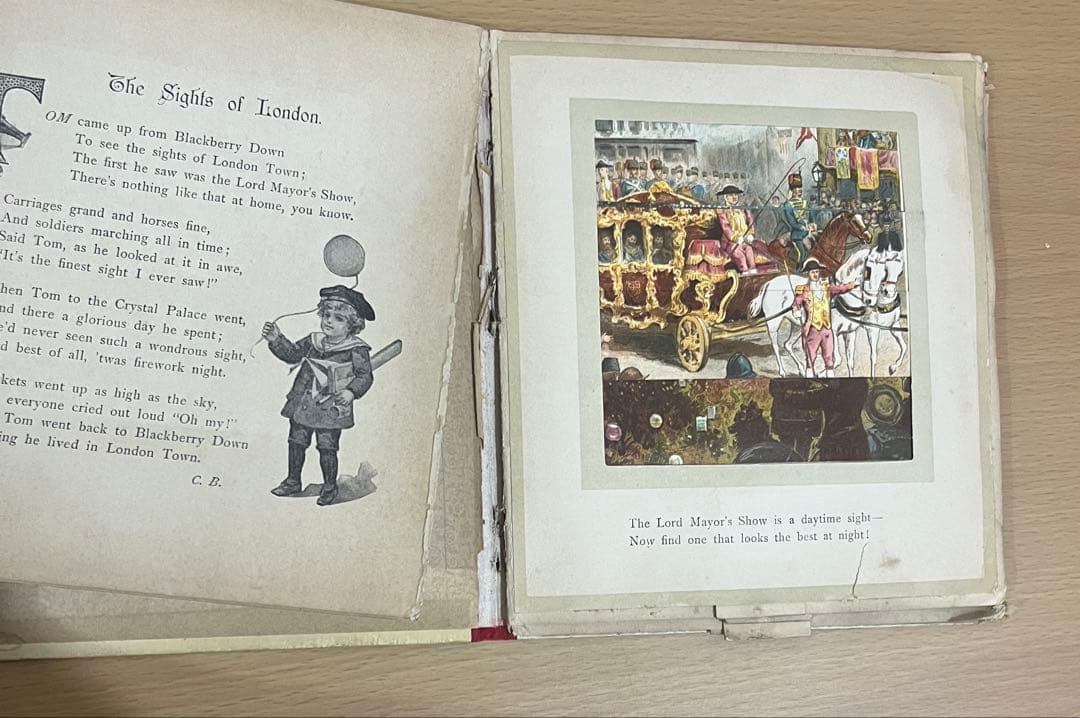 The Sights of London.
TOM came up from Blackberry Down
To see the sights of London Town;
The first he saw was the Lord Mayor's Show,
There's nothing like that at home, you know.
Carriages grand and horses fine,
And soldiers marching all in time;
Said Tom, as he looked at it in awe,
"It's the finest sight I ever saw!"
hen Tom to the Crystal Palace went,
nd there a glorious day he spent;
e'd never seen such a wondrous sight,
d best of all, 'twas firework night.
kets went up as high as the sky,
everyone cried out loud "Oh my!"
Tom went back to Blackberry Down
ing he lived in London Town.
C. B.
The Lord Mayor's Show is a daytime sight—
Now find one that looks the best at night!